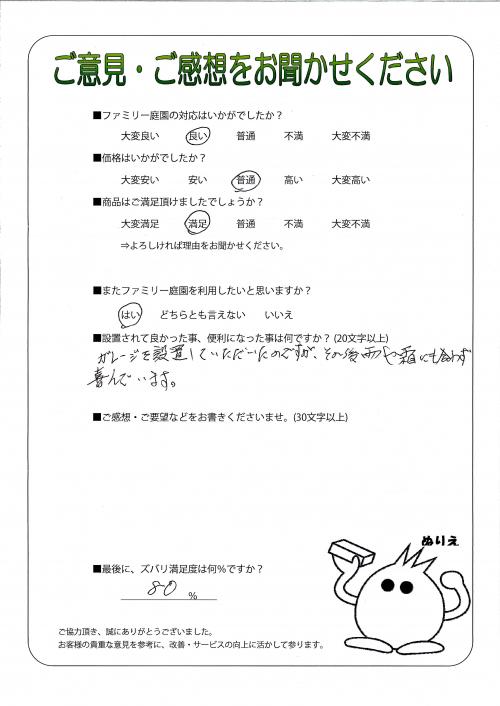 ご意見・ご感想をお聞かせください
■ファミリー庭園の対応はいかがでしたか？
大変良い 良い 普通 不満 大変不満
■価格はいかがでしたか？
大変安い 安い 普通 高い 大変高い
■商品はご満足頂けましたでしょうか？
大変満足 満足 普通 不満 大変不満
⇒よろしければ理由をお聞かせください。
■またファミリー庭園を利用したいと思いますか？
はい どちらとも言えない いいえ
■設置されて良かった事、便利になった事は何ですか？(20文字以上)
ガレージを設置していただいたのですが、その後雨や霜にも会わず
喜んでいます。
■ご感想・ご要望などをお書きくださいませ。(30文字以上)
ぬりえ
■最後に、ズバリ満足度は何％ですか？
80 %
ご協力頂き、誠にありがとうございました。
お客様の貴重な意見を参考に、改善・サービスの向上に活かして参ります。